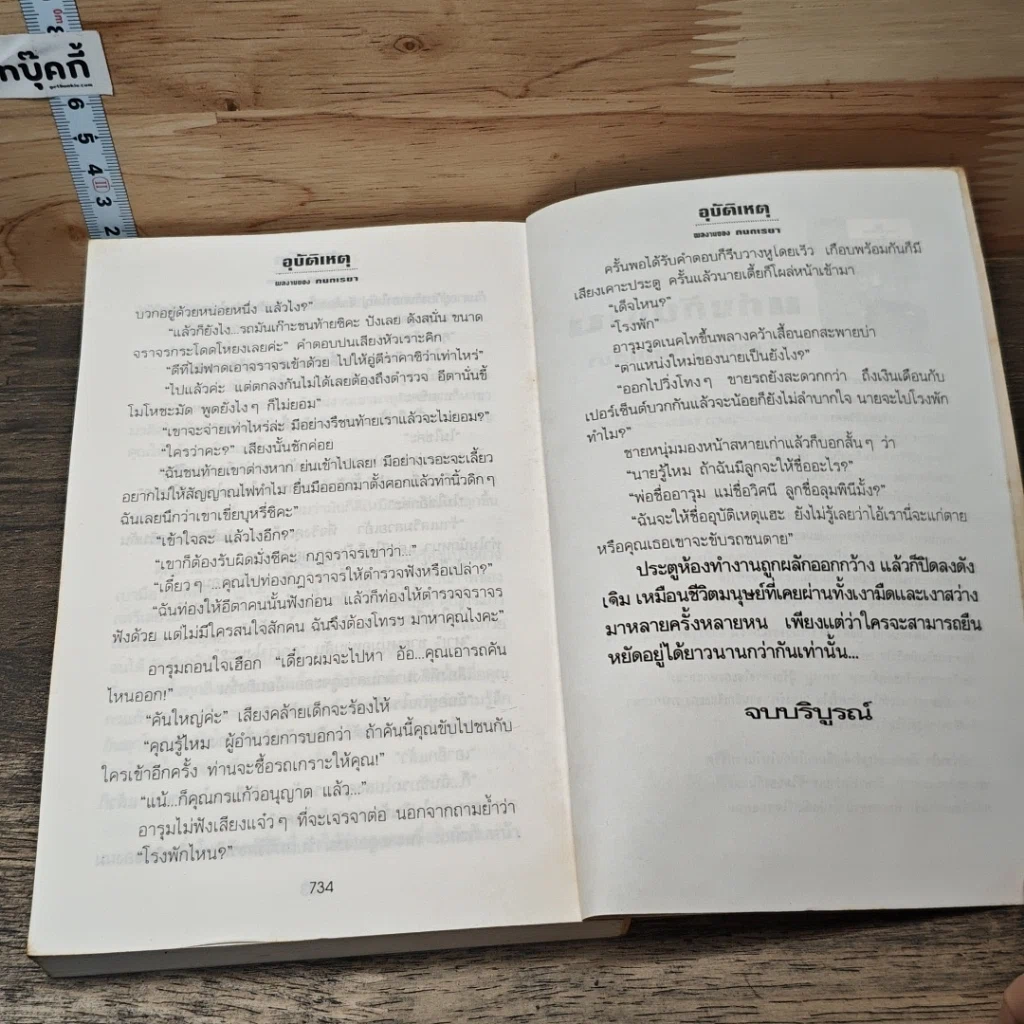 ทบุ๊คกี้
6
5
4
3
2
อุบัติเหตุ
ผลงานของ กนกเรขา
บวกอยู่ด้วยหน่อยหนึ่ง แล้วไง?"
"แล้วก็ยังไง...รถมันเก๊าะชนท้ายซิคะ ปังเลย ดังสนั่น ขนาด
จราจรกระโดดโหยงเลยค่ะ" คำตอบปนเสียงหัวเราะคิก
"ดีที่ไม่ฟาดเอาจราจรเข้าด้วย ไปให้อู่ตีราคาซิว่าเท่าไหร่"
"ไปแล้วค่ะ แต่ตกลงกันไม่ได้เลยต้องถึงตำรวจ อีตานั่นขี้
โมโหชะมัด พูดยังไงๆ ก็ไม่ยอม"
"เขาจะจ่ายเท่าไหร่ล่ะ มีอย่างรึชนท้ายเราแล้วจะไม่ยอม?"
"ใครว่าคะ?" เสียงนั้นชักค่อย
"ฉันชนท้ายเขาต่างหาก ย่นเข้าไปเลย! มีอย่างเรอะจะเลี้ยว
อยากไม่ให้สัญญาณไฟทำไม ยื่นมือออกมาตั้งศอกแล้วทำนิ้วดิกๆ
ฉันเลยนึกว่าเขาเขี่ยบุหรี่ซิคะ"
"เข้าใจละ แล้วไงอีก?"
"เขาก็ต้องรับผิดมั่งซีคะ กฎจราจรเขาว่า..."
"เดี๋ยวๆ ...คุณไปท่องกฎจราจรให้ตำรวจฟังหรือเปล่า?"
"ฉันท่องให้อีตาคนนั้นฟังก่อน แล้วก็ท่องให้ตำรวจจราจร
ฟังด้วย แต่ไม่มีใครสนใจสักคน ฉันจึงต้องโทรฯ มาหาคุณไงคะ"
อารุมถอนใจเฮือก "เดี๋ยวผมจะไปหา อ้อ...คุณเอารถคัน
ไหนออก!"
"คันใหญ่ค่ะ" เสียงคล้ายเด็กจะร้องไห้
"คุณรู้ไหม ผู้อำนวยการบอกว่า ถ้าคันนี้คุณขับไปชนกับ
ใครเข้าอีกครั้ง ท่านจะซื้อรถเกราะให้คุณ!"
"แน้...ก็คุณกรแก้วอนุญาต แล้ว..."
อารุมไม่ฟังเสียงแจ๋วๆ ที่จะเจรจาต่อ นอกจากถามย้ำว่า
"โรงพักไหน?"
734
อุบัติเหตุ
ผลงานของ กนกเรขา
ครั้นพอได้รับคำตอบก็รีบวางหูโดยเร็ว เกือบพร้อมกันก็มี
เสียงเคาะประตู ครั้นแล้วนายเตี้ยก็โผล่หน้าเข้ามา
"เด็จไหน?"
"โรงพัก"
อารุมรูดเนคไทขึ้นพลางคว้าเสื้อนอกสะพายบ่า
"ตำแหน่งใหม่ของนายเป็นยังไง?"
"ออกไปวิ่งโทงๆ ขายรถยังสะดวกกว่า ถึงเงินเดือนกับ
เปอร์เซ็นต์บวกกันแล้วจะน้อยก็ยังไม่ลำบากใจ นายจะไปโรงพัก
ทำไม?"
ชายหนุ่มมองหน้าสหายเก่าแล้วก็บอกสั้นๆ ว่า
"นายรู้ไหม ถ้าฉันมีลูกจะให้ชื่ออะไร?"
"พ่อชื่ออารุม แม่ชื่อวิศนี ลูกชื่อลุมพินีมั้ง?"
"ฉันจะให้ชื่ออุบัติเหตุแฮะ ยังไม่รู้เลยว่าไอ้เรานี่จะแก่ตาย
หรือคุณเธอเขาจะขับรถชนตาย"
ประตูห้องทำงานถูกผลักออกกว้าง แล้วก็ปิดลงดัง
เดิม เหมือนชีวิตมนุษย์ที่เคยผ่านทั้งเงามืดและเงาสว่าง
มาหลายครั้งหลายหน เพียงแต่ว่าใครจะสามารถยืน
หยัดอยู่ได้ยาวนานกว่ากันเท่านั้น...
จบบริบูรณ์